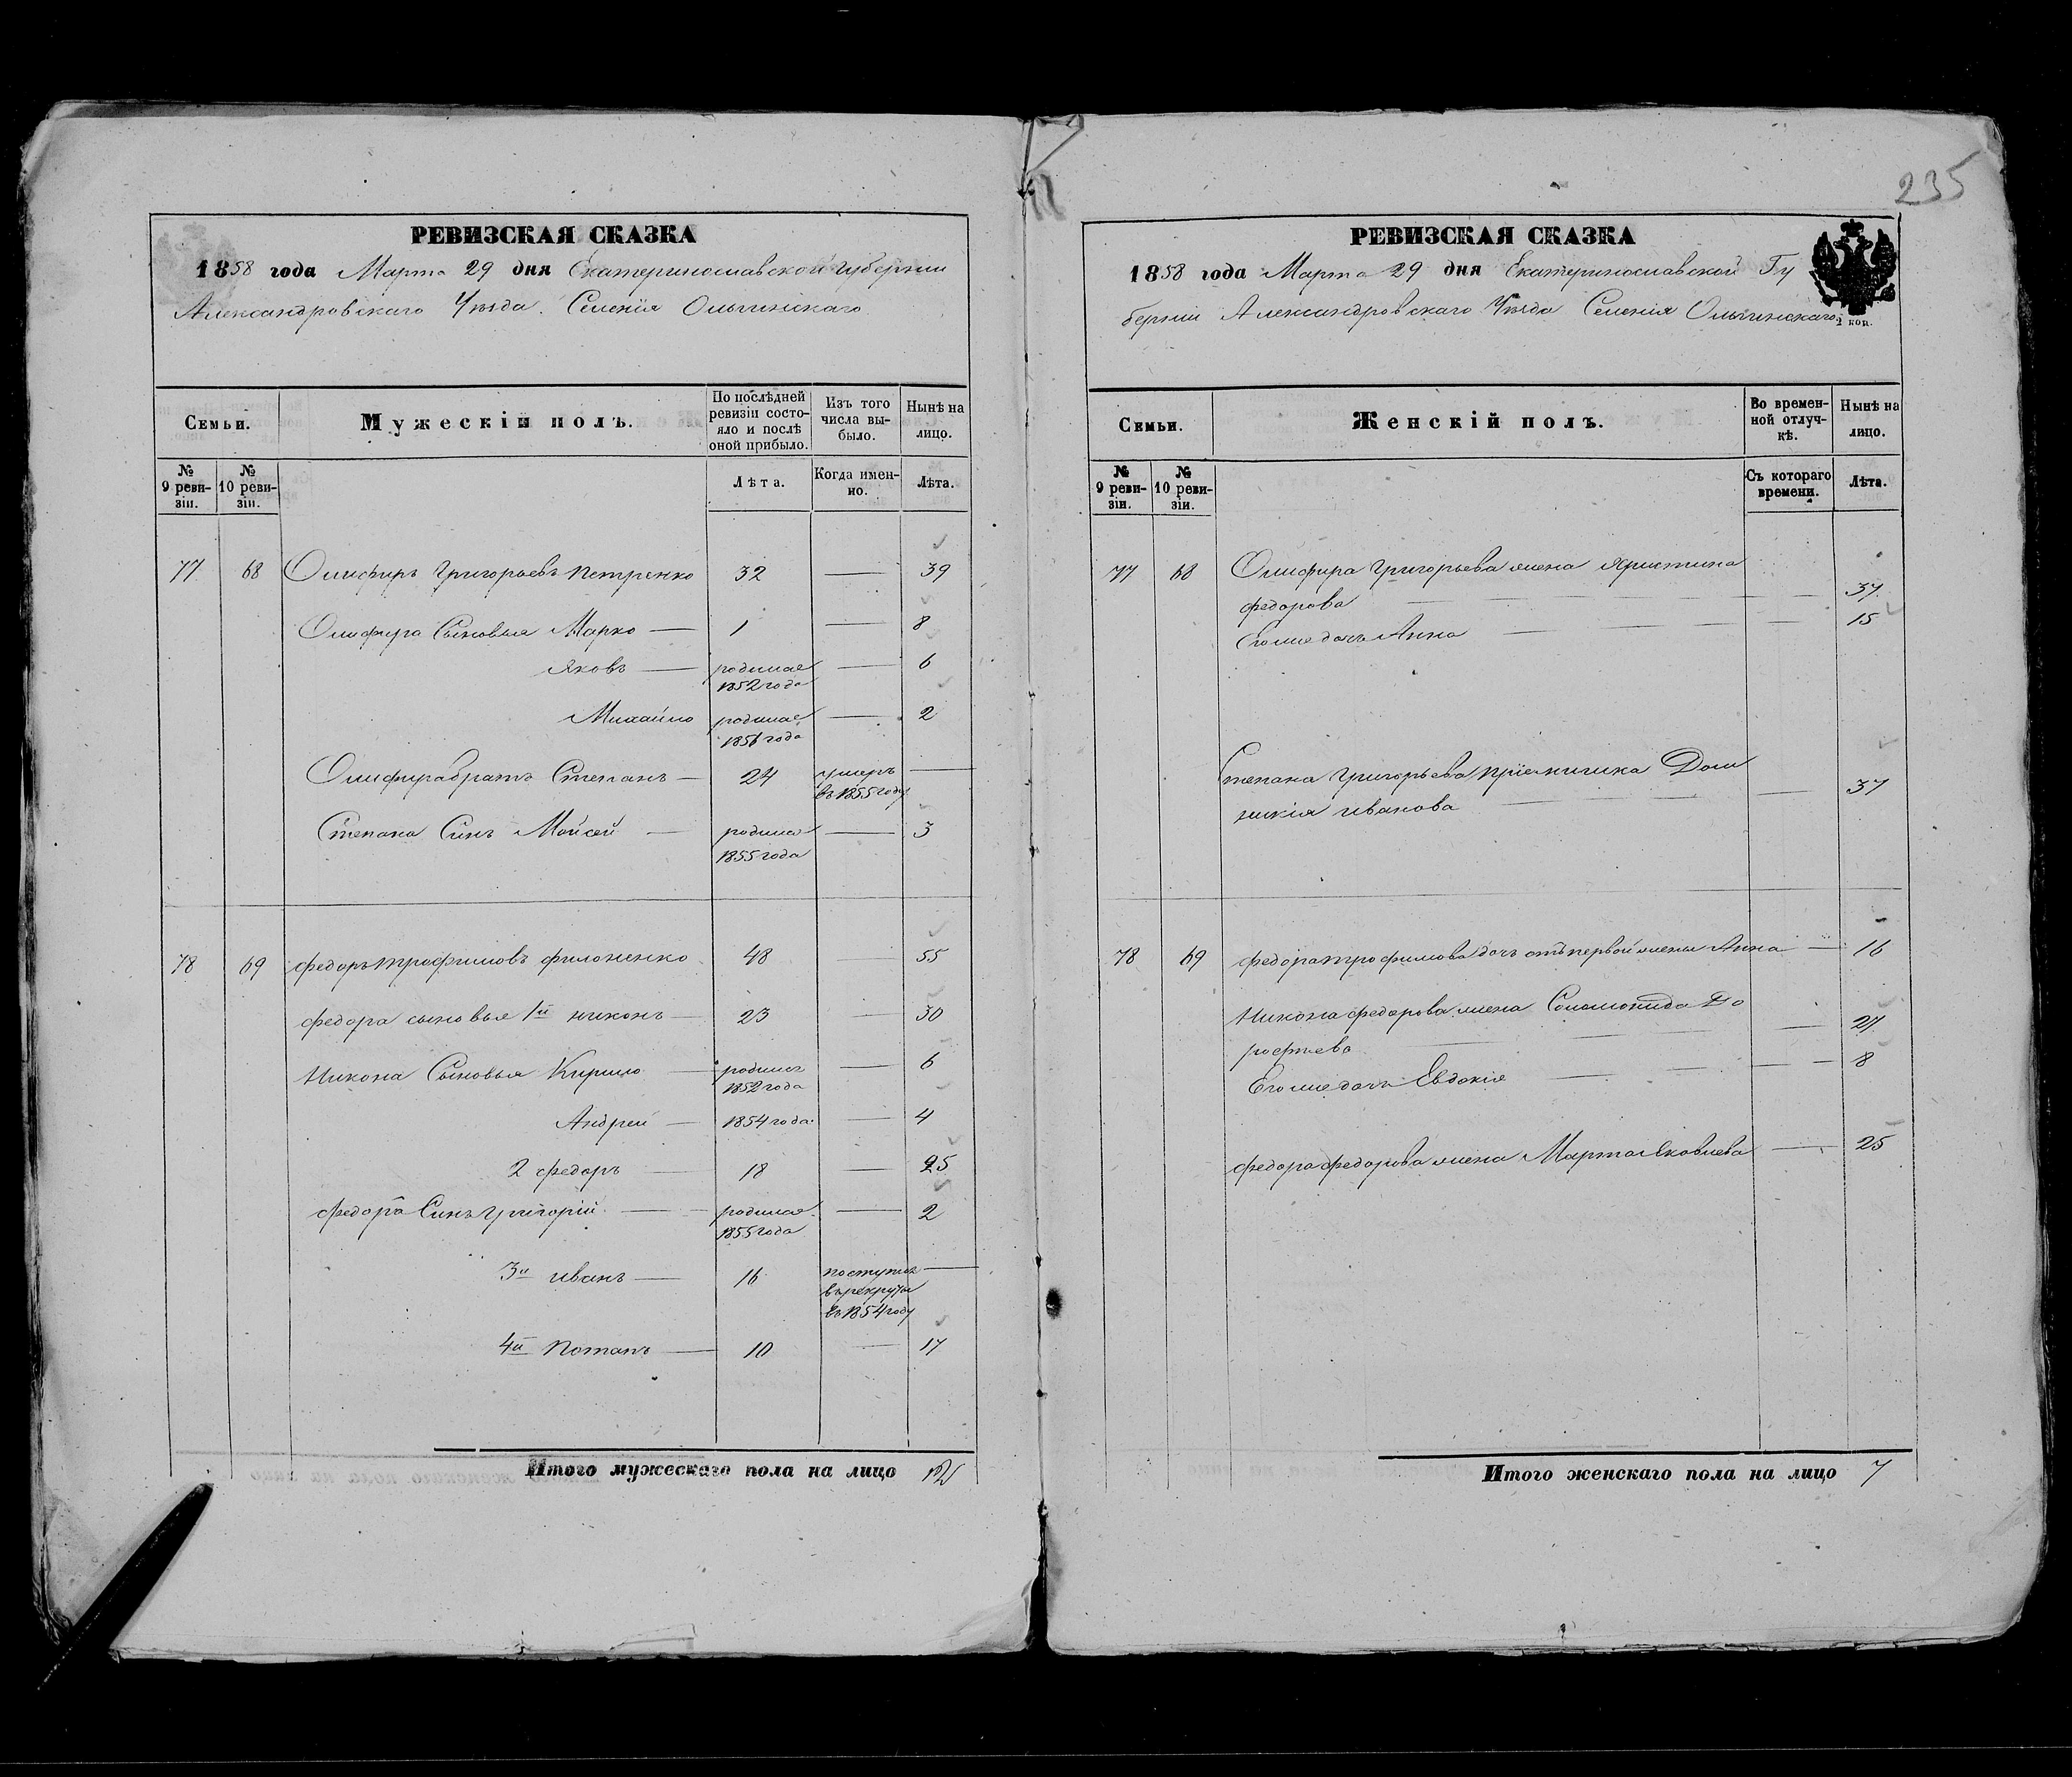 235
РЕВИЗСКАЯ СКАЗКА
1858 года Марта 29 дня Екатеринославской Губернии
Александровскаго Уѣзда. Селенія Ольгинскаго
Семьи.
Мужескій полъ.
По послѣдней ревизіи состояло и послѣ оной прибыло.
Изъ того числа выбыло.
Нынѣ на лицо.
№ 9 ревизіи.
№ 10 ревизіи.
Лѣта.
Когда именно.
Лѣта.
77 68 Олифиръ Григорьевъ Петренко 32 — 39
Олифира Сыновья Марко — 1 — 8
Яковъ — родился — 6
1852 года
Михайло родился — 2
1856 года
Олифира братъ Степанъ — 24 умеръ —
въ 1855 году
Степана Синъ Мойсей — родился — 3
1855 года
78 69 Федоръ Трофимовъ Филоненко 48 — 55
Федора сыновья 1й Никонъ — 23 — 30
Никона Сыновья Кирило — родился — 6
1852 года
Андрей — 1854 года — 4
2 Федоръ — 18 — 25
Федора Синъ Григорій — родился — 2
1855 года
3й Иванъ — 16 поступилъ —
въ рекруты
въ 1854 году
4й Потапъ — 10 — 17
Итого мужескаго пола на лицо 12
РЕВИЗСКАЯ СКАЗКА
1858 года Марта 29 дня Екатеринославской Гу
берніи Александровскаго Уѣзда Селенія Ольгинскаго
2 коп.
Семьи.
Женскій полъ.
Во временной отлучкѣ.
Нынѣ на лицо.
№ 9 ревизіи.
№ 10 ревизіи.
Съ котораго времени.
Лѣта.
77 68 Олифира Григорьева жена Христина
Федорова — — 37
Его же дочь Анна — — 15
Степана Григорьева Доми
никія Иванова — — 37
78 69 Федора Трофимова дочь отъ первой жены Анна — 16
Никона Федорова жена Соломонида До
рофѣева — — 27
Его же дочь Евдокія — — 8
Федора Федорова жена Марта Яковлева — 25
Итого женскаго пола на лицо 7